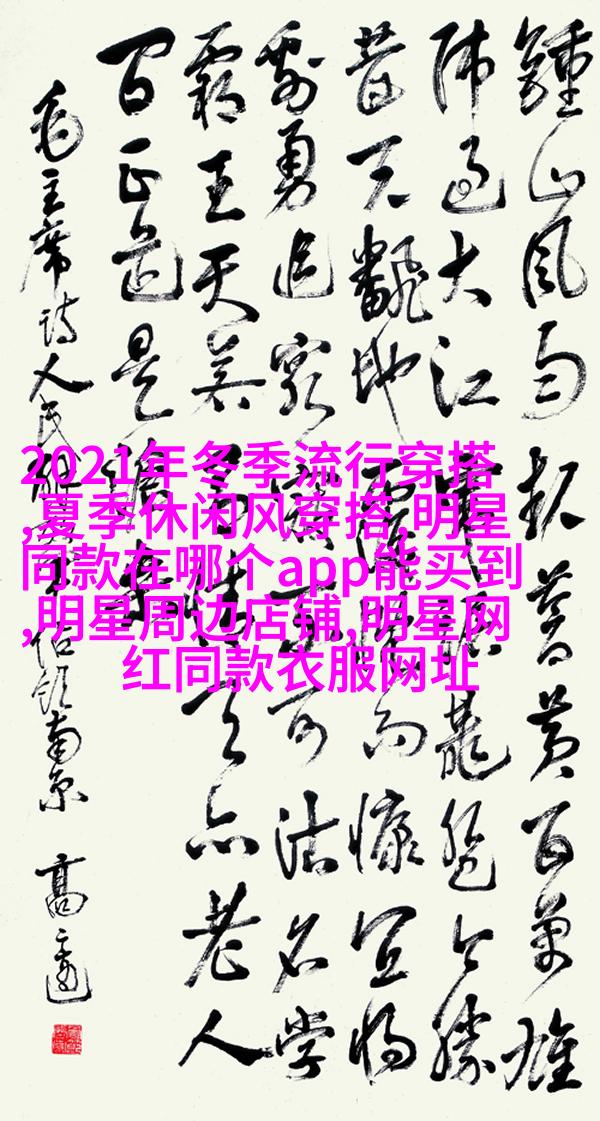 鍾山風雨起蒼黃百萬雄
師過大江虎踞龍盤今勝
昔天翻地覆慨而慷宜將
剩勇追窮寇不可沽名學
霸王天若有情天亦老人
間正道是滄桑
毛主席詩人民解放軍佔領南京 高
2021年冬季流行穿搭
,夏季休闲风穿搭,明星
同款在哪个app能买到
,明星周边店铺,明星网
红同款衣服网址